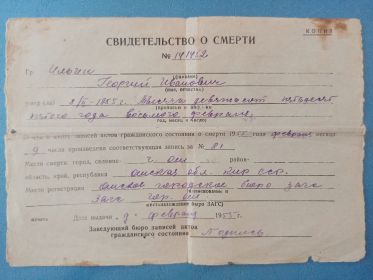 КОПИЯ
СВИДЕТЕЛЬСТВО О СМЕРТИ
№ 191452
Гр. Ильин
(фамилия)
Георгий Иванович
(имя, отчество)
умер(ла) 8/II-1955 г. тысяча девятьсот пятьдесят
(прописью и
пятого года восьмого февраля
год, месяц и число)
о чем в книге записей актов гражданского состояния о смерти 1955 года февраля месяца
9 числа произведена соответствующая запись за № 81
Место смерти: город, селение г. Ош район
область, край, республика Ошская обл. Кир. ССР.
Место регистрации Ошское городское бюро загс
загс гор. Ош
бюро ЗАГС)
Дата выдачи 9 февраля 1955 г.
Заведующий бюро записей актов
гражданского состояния Подпись